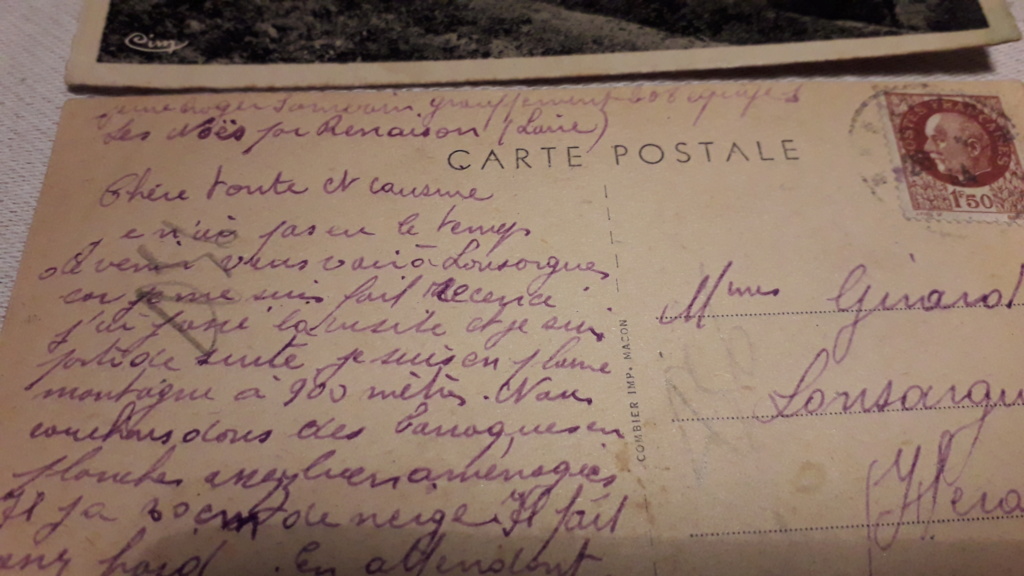 Cim
Les Noës par Renaison (Loire)
CARTE POSTALE
POSTES FRANÇAISES
1F50
Chère tante et cousine
je n'ai pas eu le temps
de venir vous voir à Lansargues
car je me suis fait recencé
j'ai passé la visite et je suis
parti de suite, je suis en pleine
montagne à 900 mètrès. Nous
couchons dans des baraques en
planches assez bien aménagées
Il y a 20 cm de neige Il fait
froid. En attendant
COMBIER IMP. MACON
Mmes Girard
Lansargu
Héra